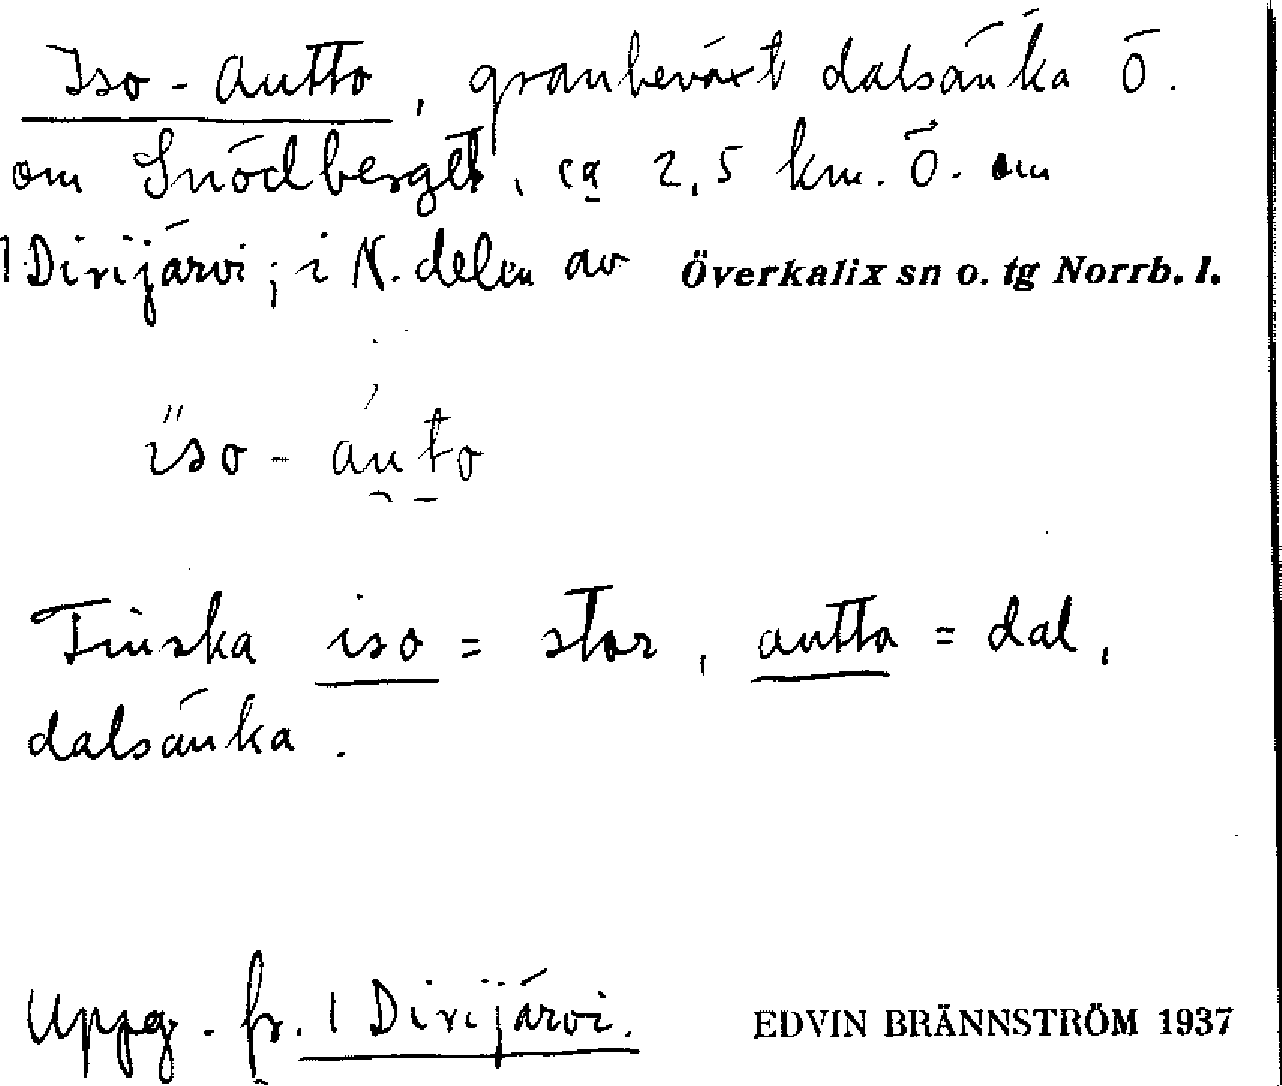 Iso-Autto, granbeväxt dalsänka Ö.
om Snödberget, ca 2,5 km. Ö. om
1 Dirijärvi; i N. delen av Överkalix sn o. tg Norrb. l.
iso-auto
Finska iso = stor, autta = dal,
dalsänka.
Uppg. fr. 1 Dirijärvi. EDVIN BRÄNNSTRÖM 1937